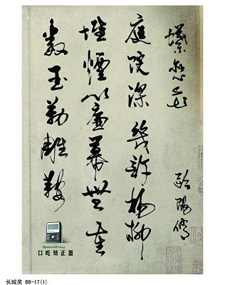 蝶戀花
歐陽脩
庭院深幾許楊柳
堆煙簾幕無重
數玉勒雕鞍
口吃矫正器
长城奖 88-17(1)